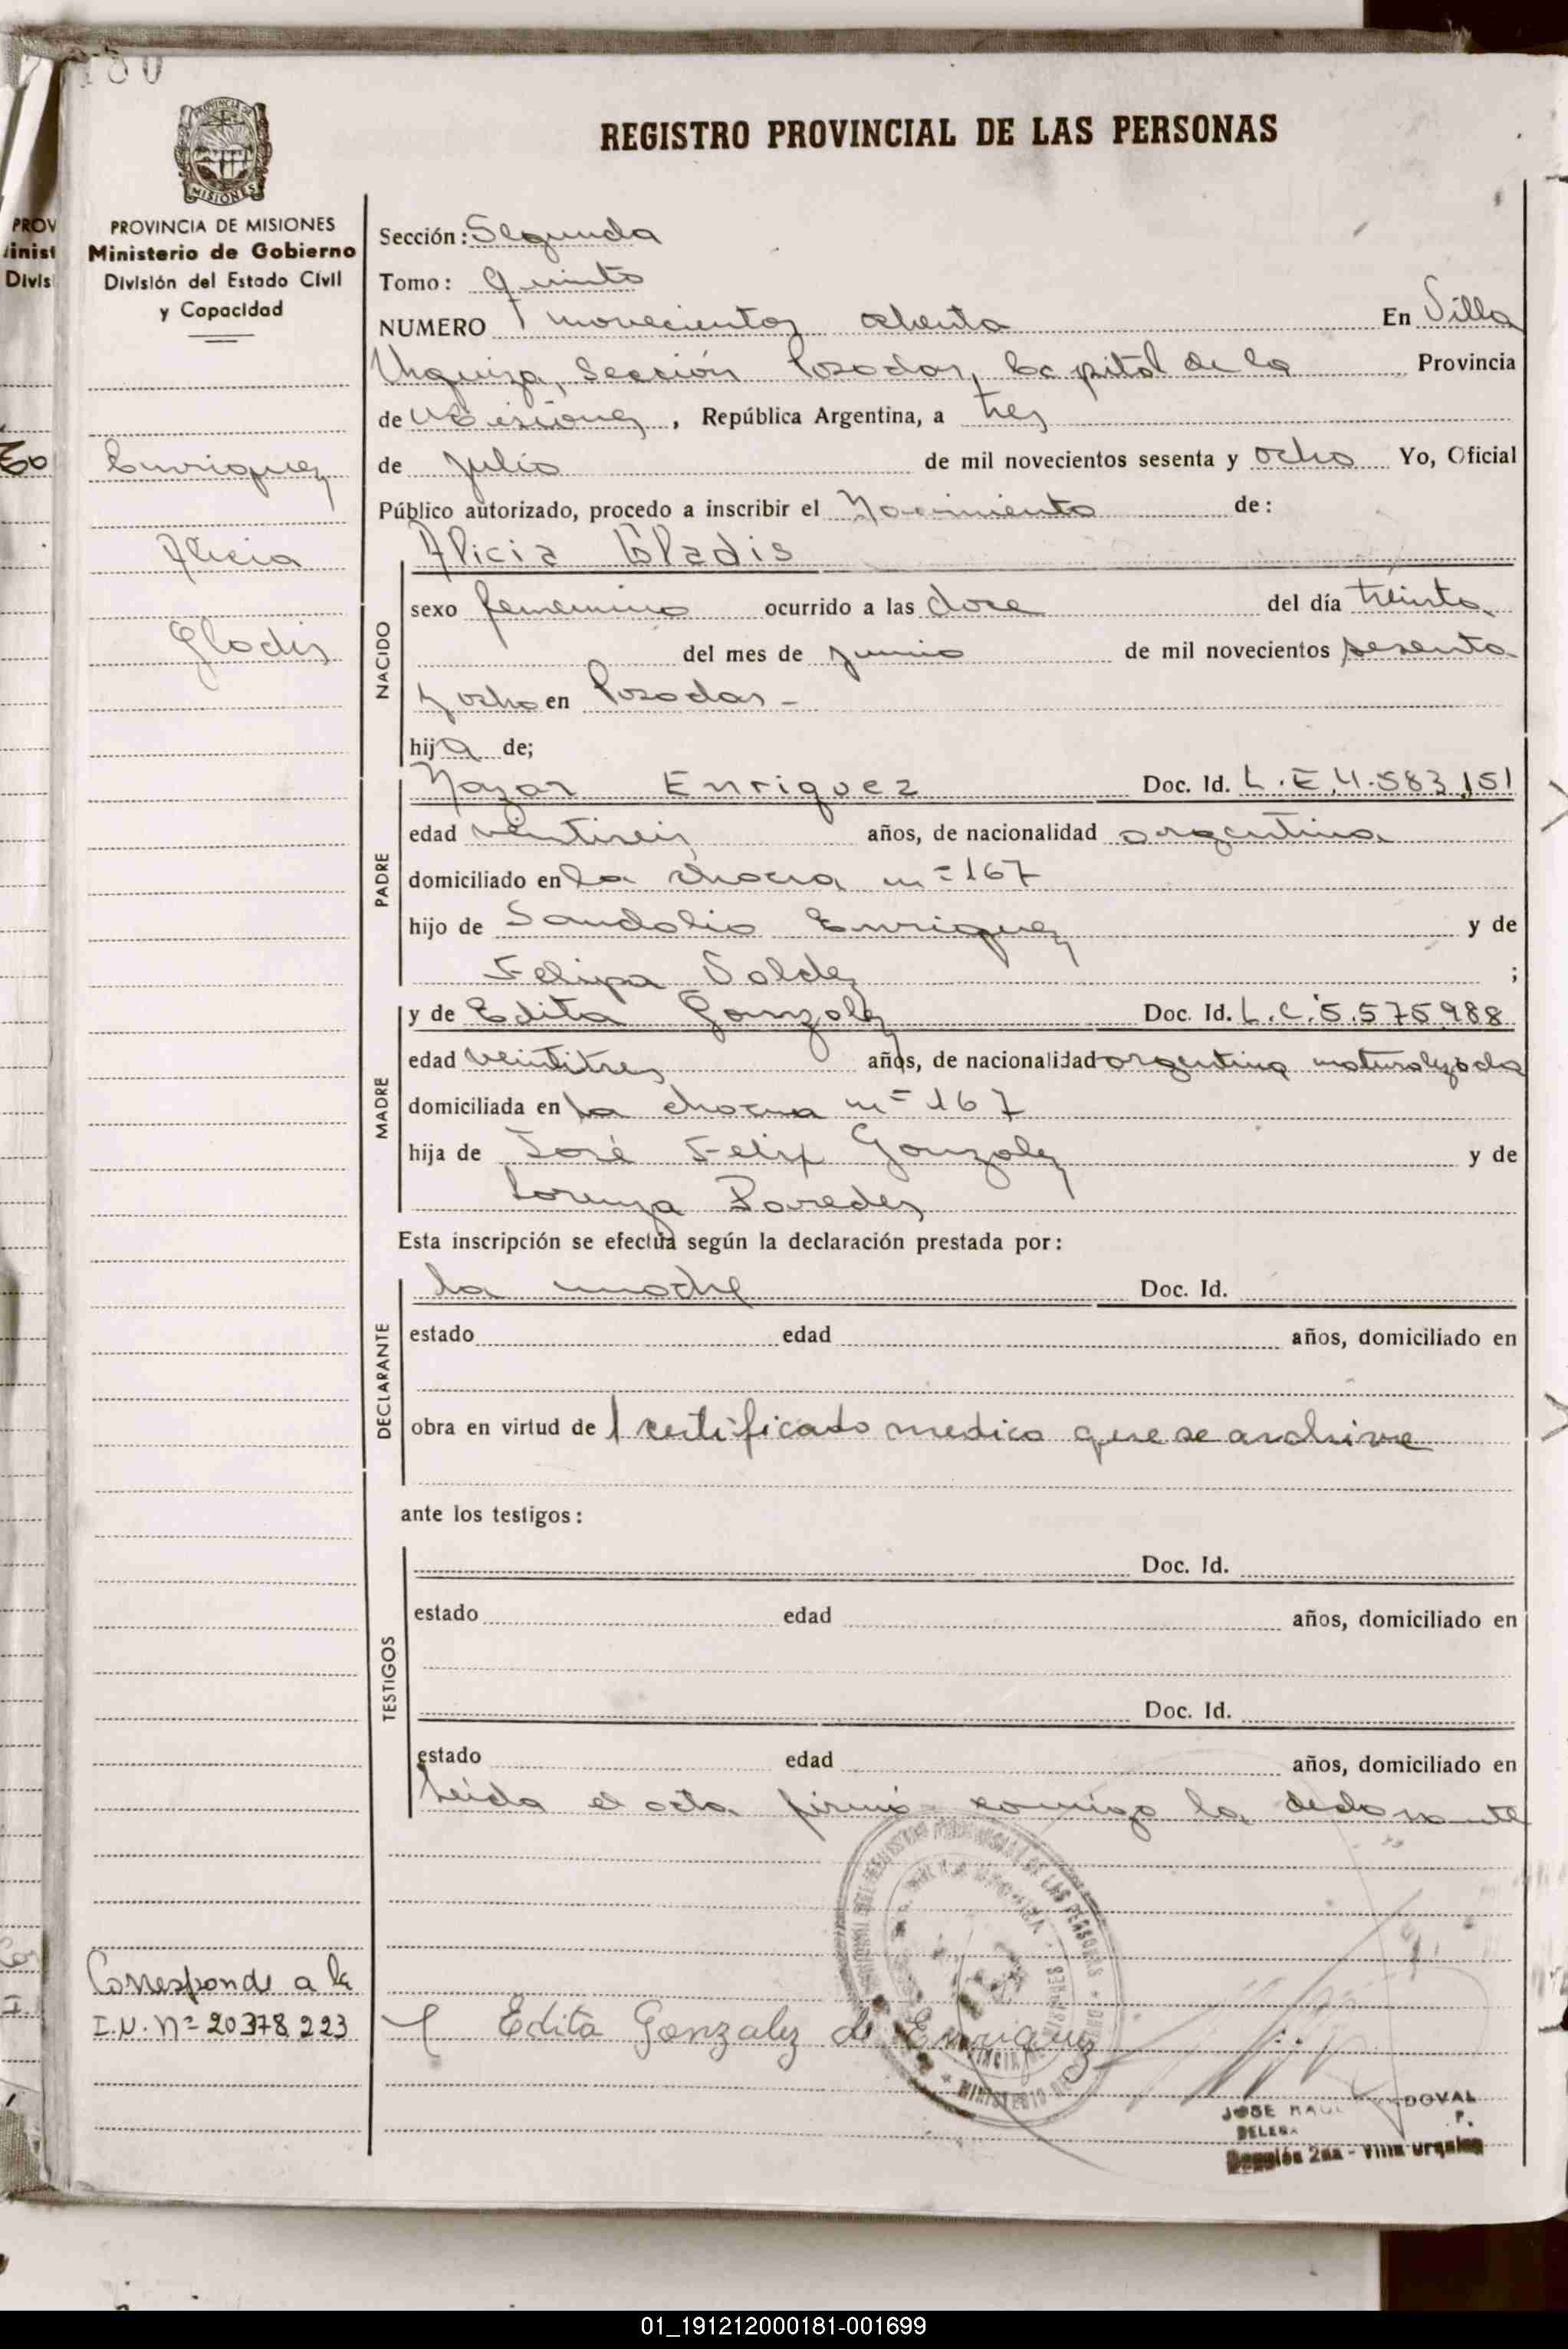 REGISTRO PROVINCIAL DE LAS PERSONAS
MISIONES
PROVINCIA DE MISIONES
Ministerio de Gobierno
División del Estado Civil
y Capacidad
Enriquez
Alicia
Gladis
Sección: Segunda
Tomo: Quinto
NUMERO novecientos ochenta En Villa
Urquiza, Sección Posadas, Capital de la Provincia
de Misiones, República Argentina, a tres
de Julio de mil novecientos sesenta y ocho Yo, Oficial
Público autorizado, procedo a inscribir el Nacimiento de:
Alicia Gladis
NACIDO
sexo femenino ocurrido a las doce del día treinta
del mes de junio de mil novecientos sesenta
y ocho en Posadas -
hija de;
PADRE
Enriquez Doc. Id. L.E.4.583.151
edad ventiseis años, de nacionalidad argentina
domiciliado en la chacra nº 167
hijo de Sandalio Enriquez y de
Felipa Valdez ;
MADRE
y de Edita Gonzalez Doc. Id. L.C.5.575988
edad veintitres años, de nacionalidad argentina naturalizada
domiciliada en la chacra nº 167
hija de José Felix Gonzalez y de
Lorenza Paredes
Esta inscripción se efectúa según la declaración prestada por:
DECLARANTE
la madre Doc. Id.
estado edad años, domiciliado en
obra en virtud de 1 certificado medico que se archiva
ante los testigos:
TESTIGOS
Doc. Id.
estado edad años, domiciliado en
Doc. Id.
estado edad años, domiciliado en
Leida el acta firmó conmigo la declarante
Corresponde a la
I.N. Nº 20378223
Edita Gonzalez de Enriquez
JOSE RAUL DOVAL
Sección 2da - Villa Urquiza
01_191212000181-001699